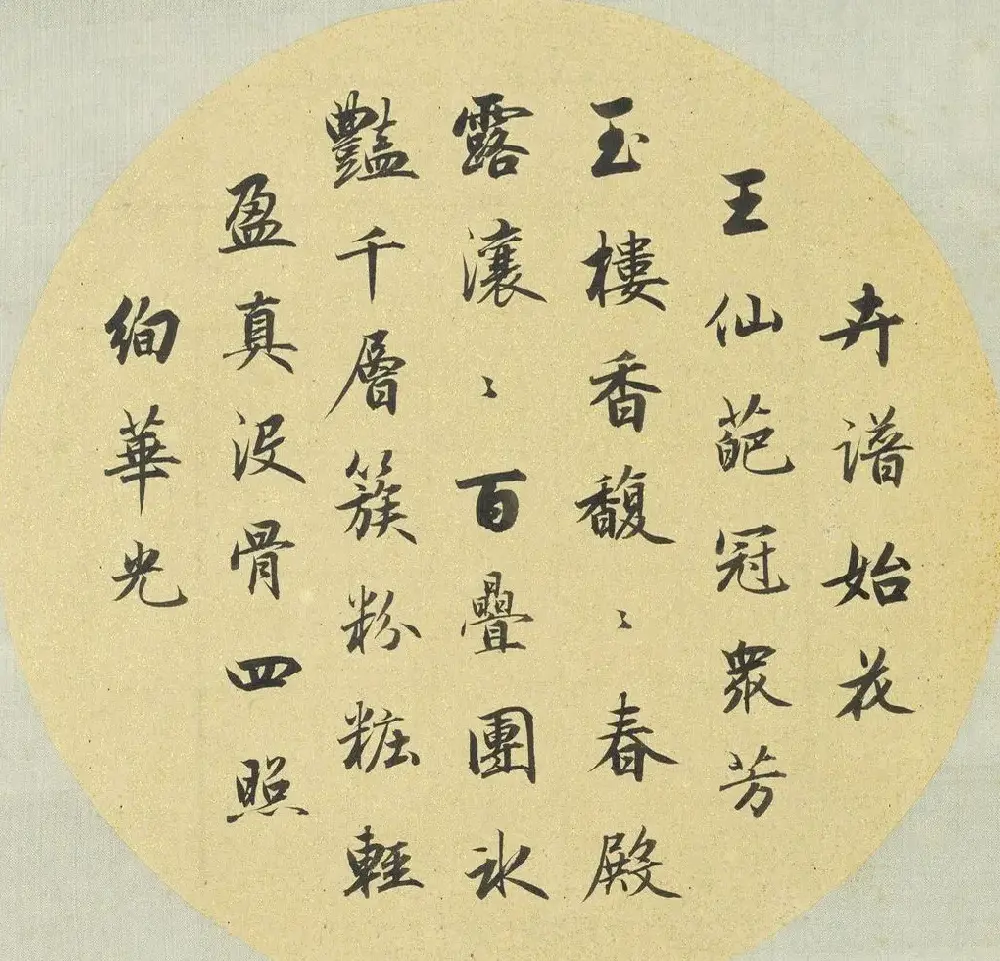 卉譜始花
王仙葩冠衆芳
玉樓香馥〻春殿
露瀼〻百疊團冰
豔千層簇粉粧輕
盈真没骨四照
絢華光